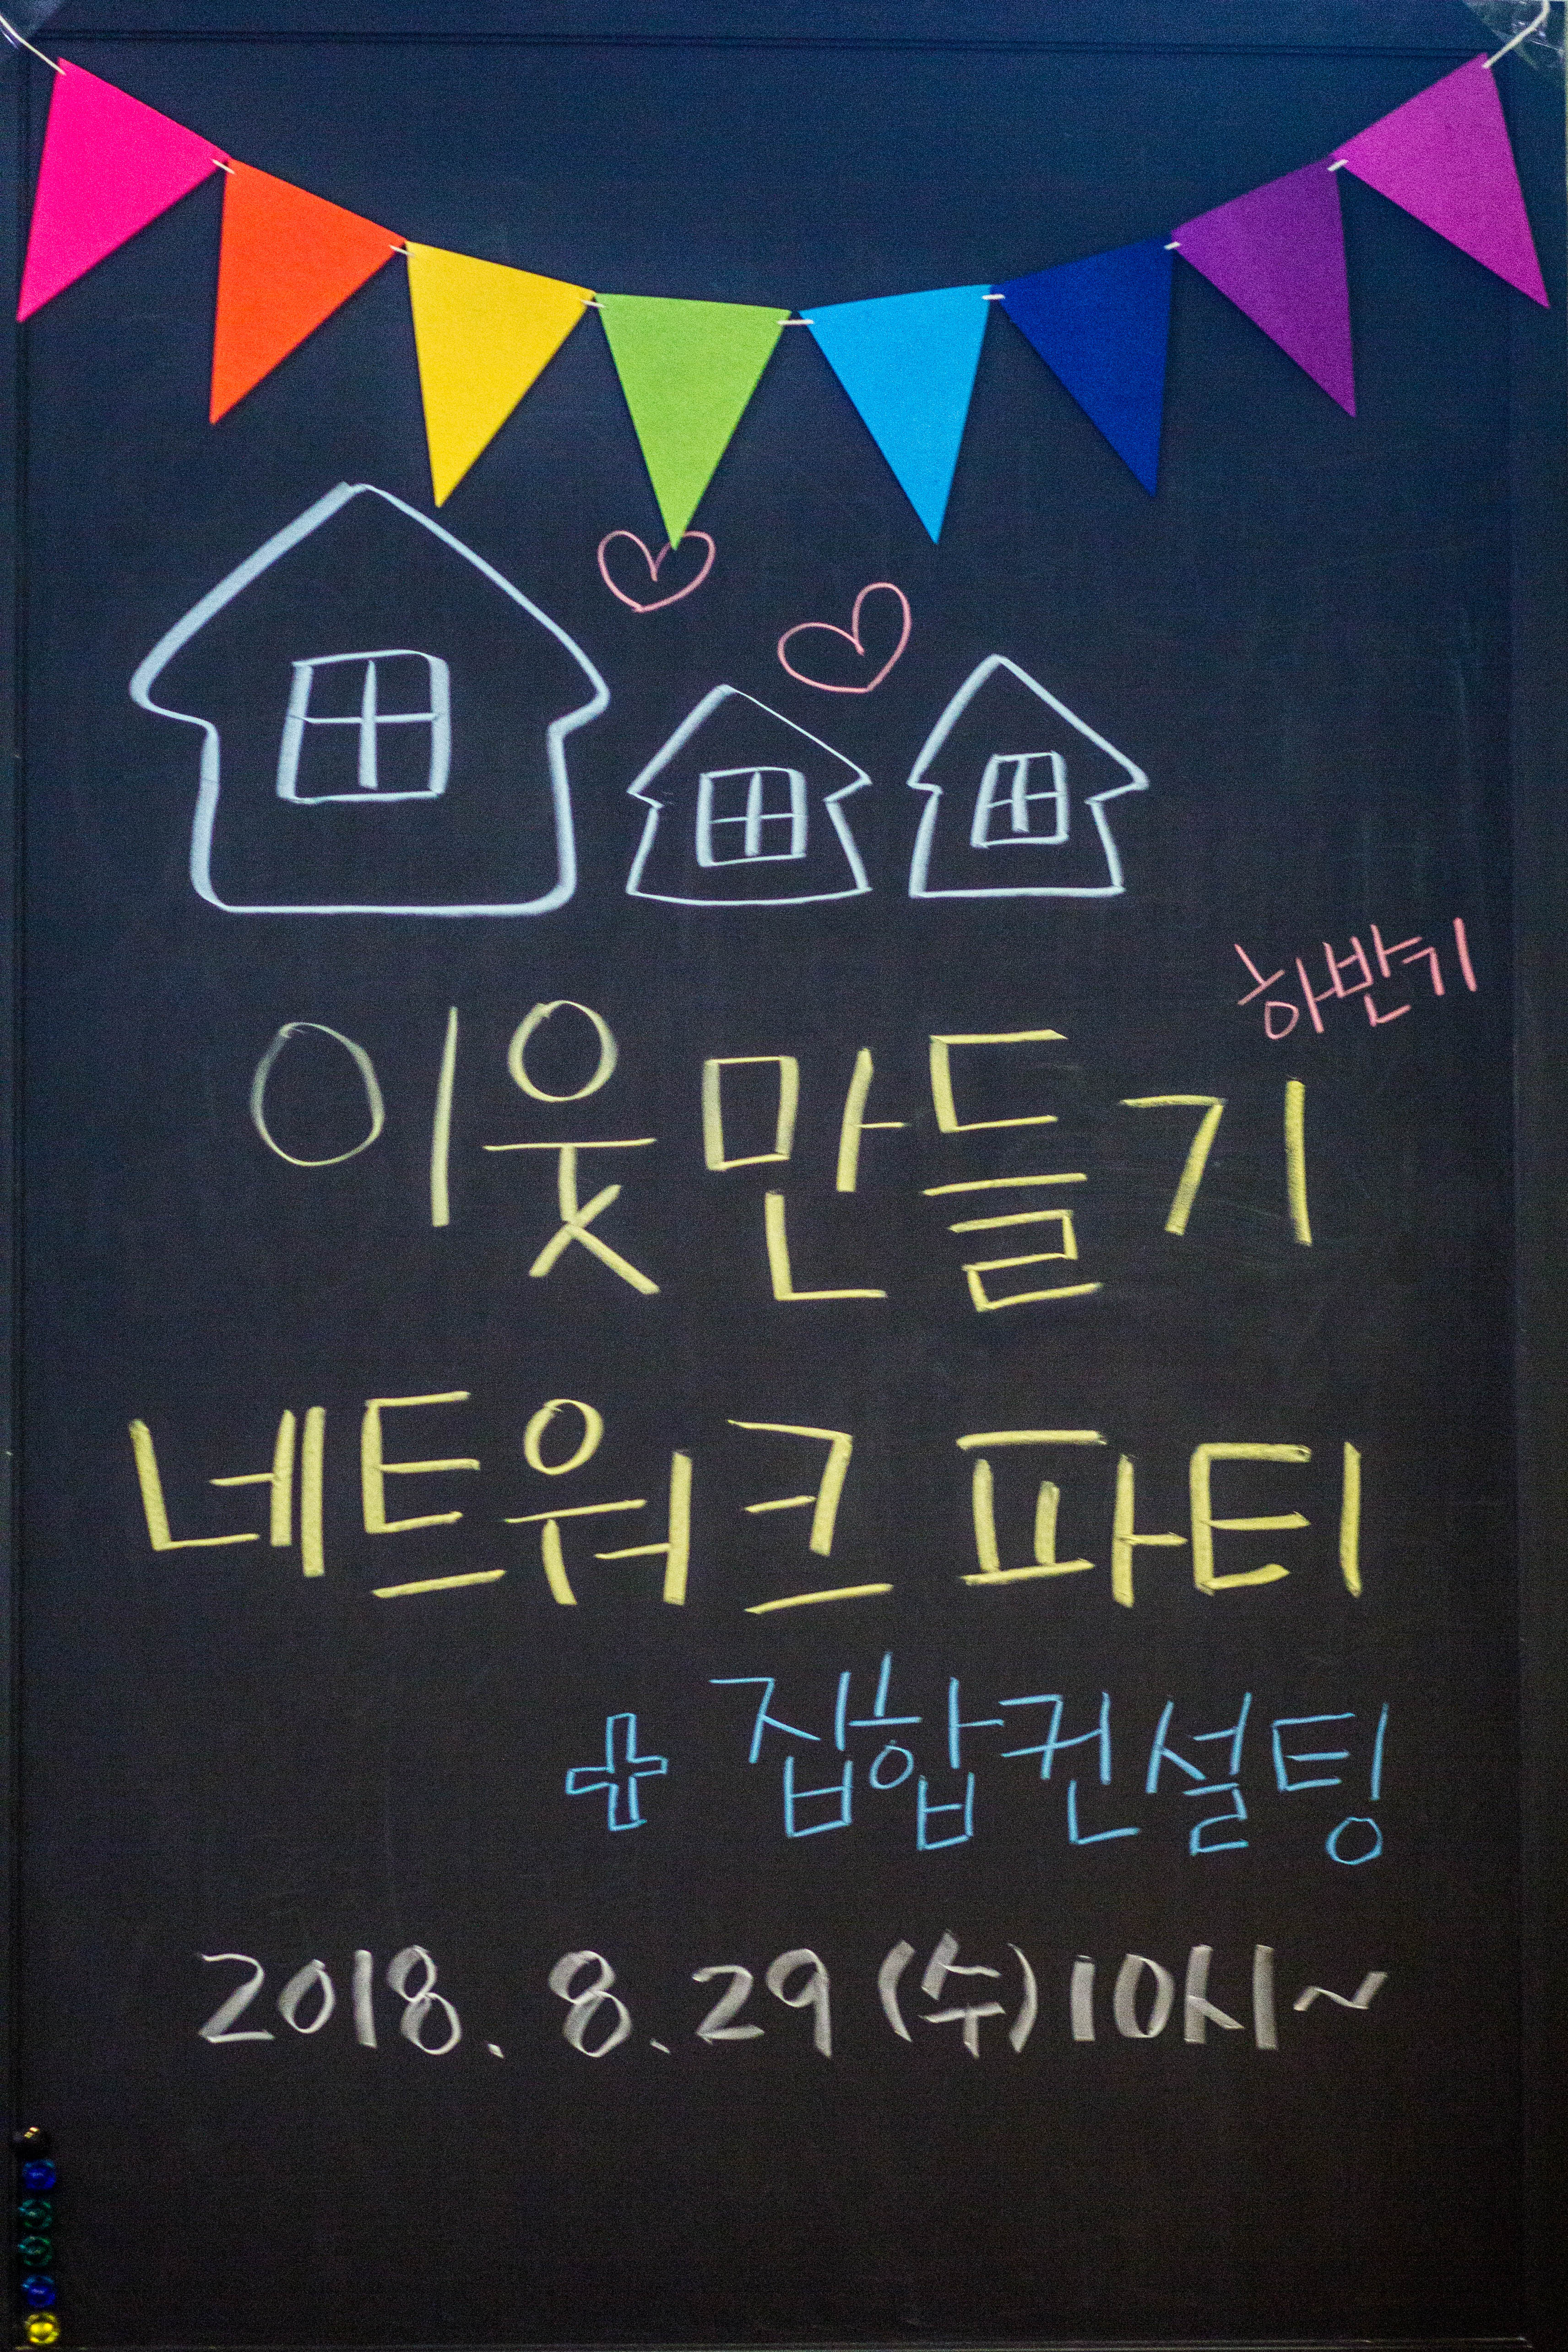 하반기
이웃만들기
네트워크 파티
+ 집합컨설팅
2018. 8. 29 (수) 10시~